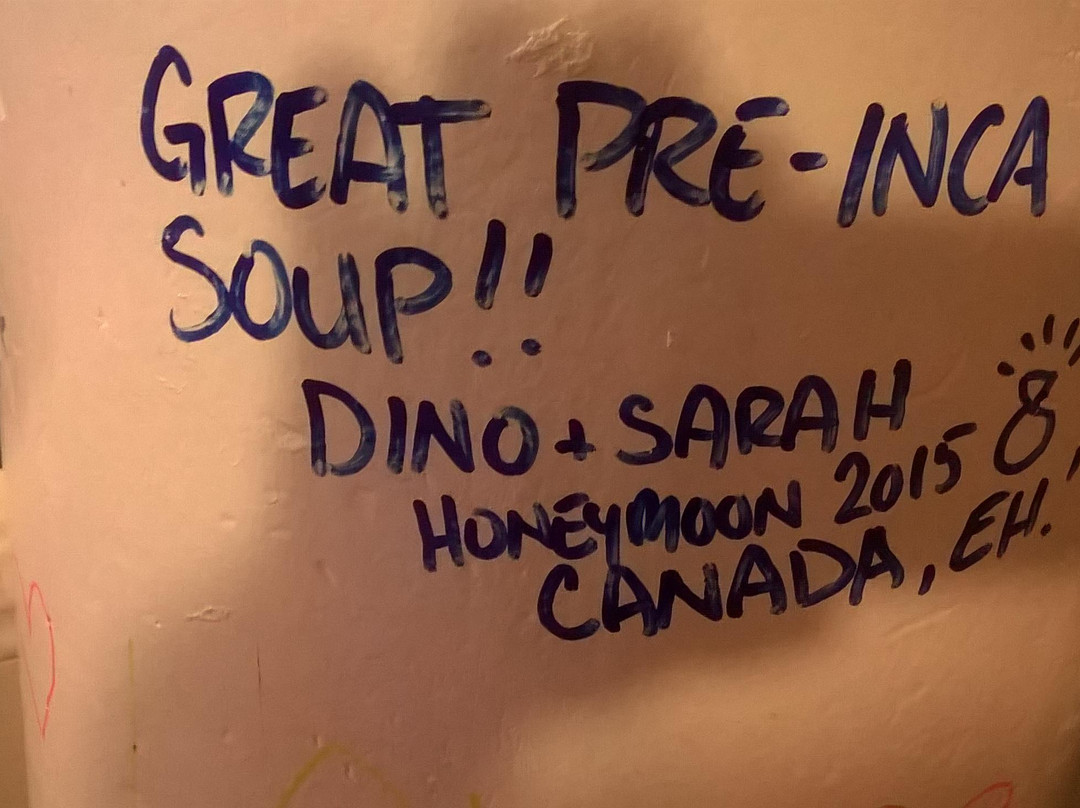 GREAT PRE-INCA
SOUP!!
DINO + SARAH
HONEYMOON 2015
CANADA, EH.